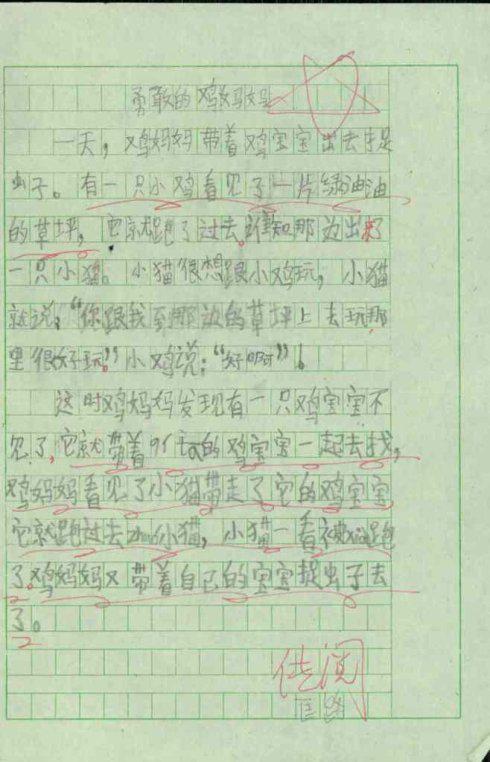 勇敢的鸡妈妈
一天，鸡妈妈带着鸡宝宝出去捉
虫子。有一只小鸡看见了一片绿油油
的草坪，它就跑了过去。谁知那边出来
一只小猫。小猫很想跟小鸡玩，小猫
就说：“你跟我到那边的草坪上去玩那
里很好玩。”小鸡说：“好啊”！
这时鸡妈妈发现有一只鸡宝宝不
见了，它就带着的鸡宝宝一起去找，
鸡妈妈看见了小猫带走了它的鸡宝宝
它就跑过去zhuó小猫，小猫一看被跑
了。鸡妈妈又带着自己的宝宝捉虫子去
了。
传阅